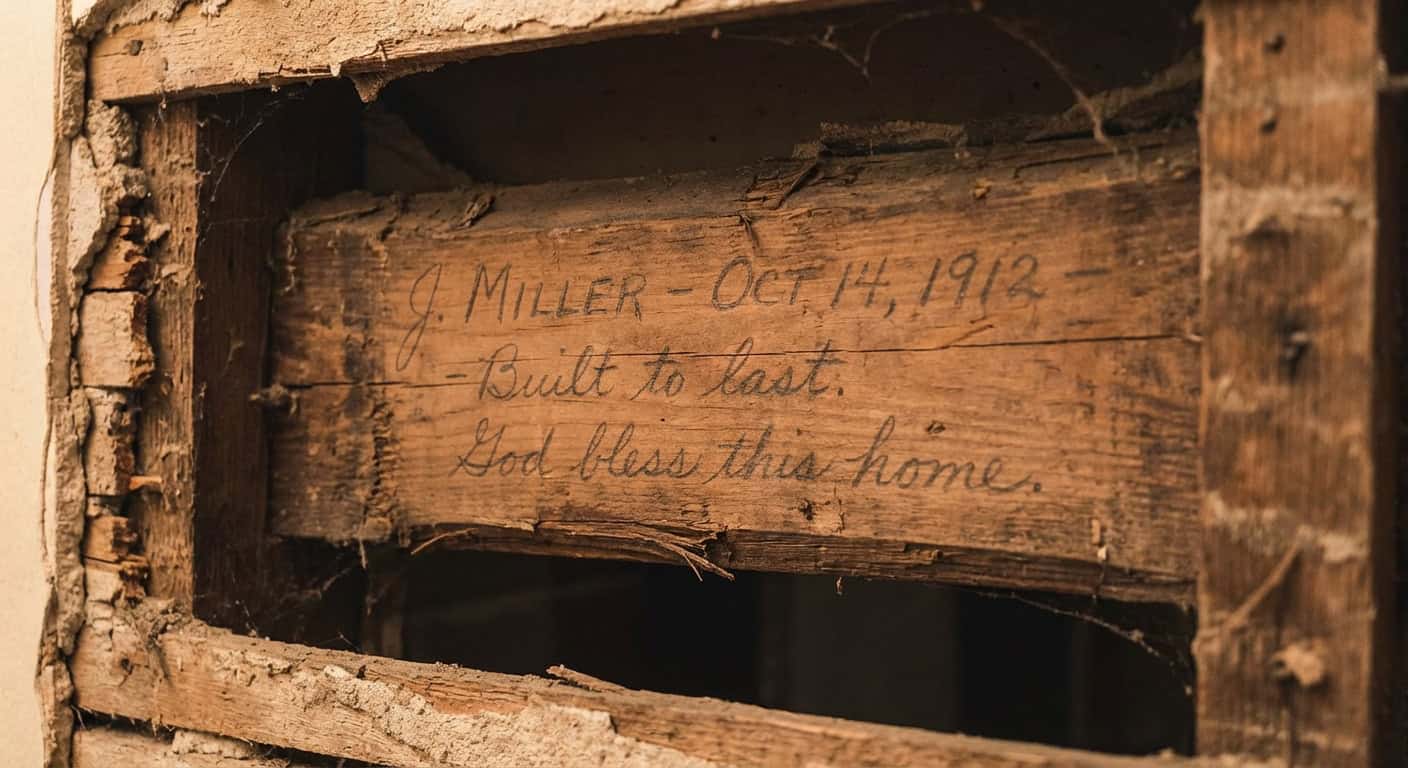 J. MILLER - OCT 14, 1912 -
- Built to last.
God bless this home.